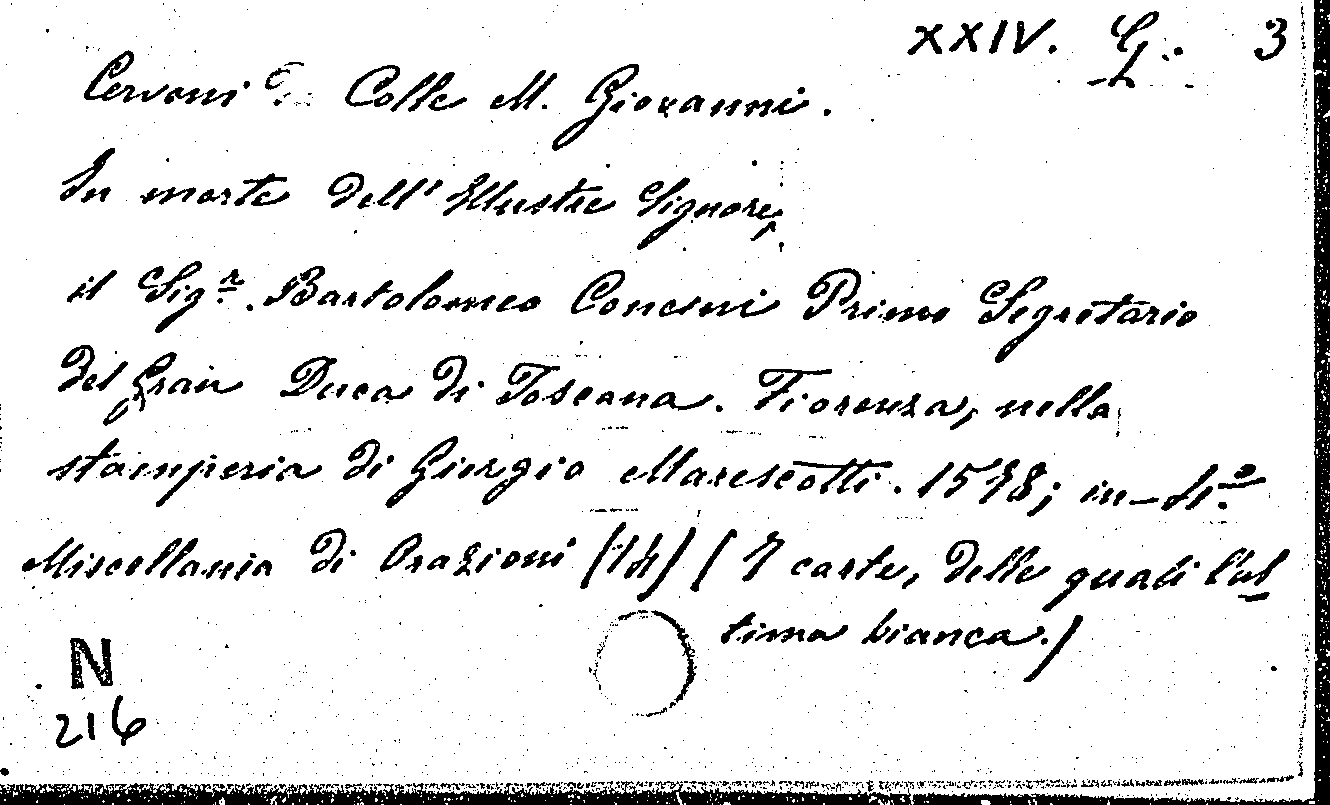 XXIV. G. 3
Cervoni da Colle M. Giovanni.
In morte dell'Illustre Signore,
il Sigr. Bartolomeo Concini Primo Segretario
del Gran Duca di Toscana. Fiorenza, nella
stamperia di Giorgio Marescotti. 1578; in-4o.
Miscellania di Orazioni (14) (7 carte, delle quali l'ul
tima bianca.)
N
216